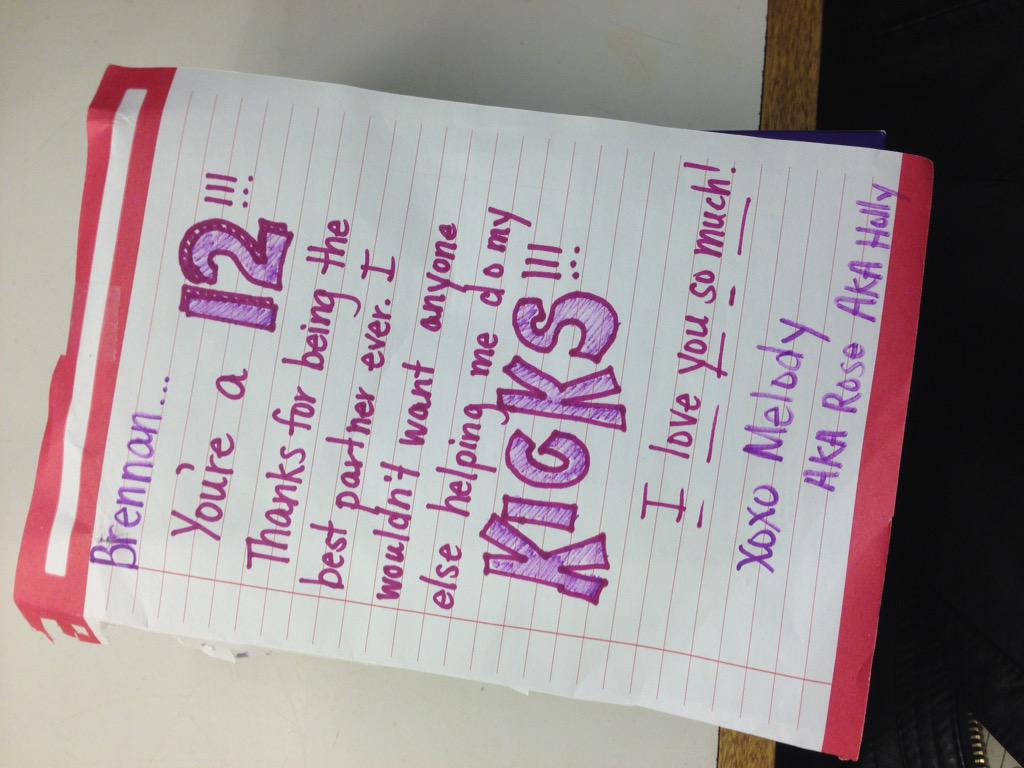 Brennan...
You're a 12!!!
Thanks for being the
best partner ever. I
wouldn't want anyone
else helping me do my
KICKS!!!
I love you so much!
XOXO Melody
AKA Rose AKA Holly